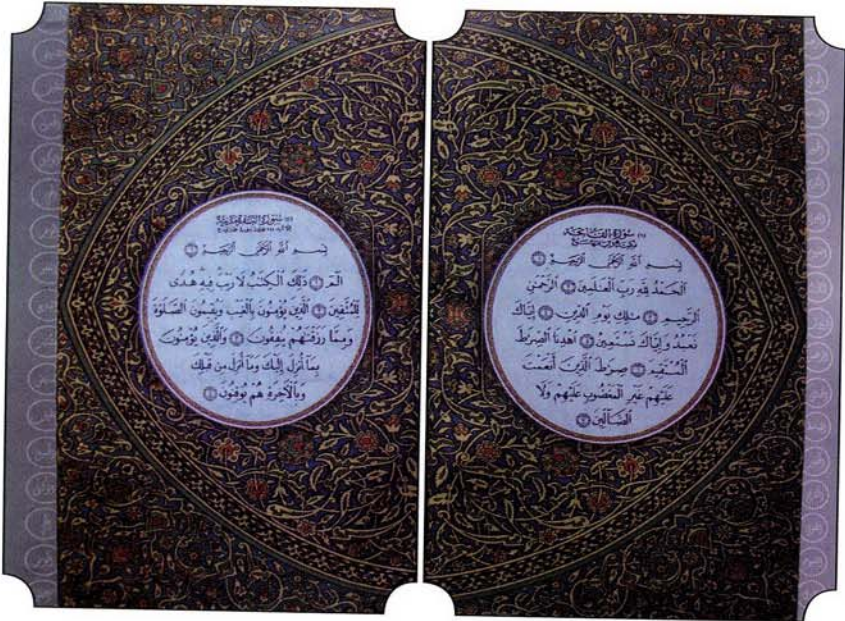 سورة الفاتحة
بِسْمِ ٱللَّهِ ٱلرَّحْمَٰنِ ٱلرَّحِيمِ
ٱلْحَمْدُ لِلَّهِ رَبِّ ٱلْعَٰلَمِينَ ٱلرَّحْمَٰنِ
ٱلرَّحِيمِ مَٰلِكِ يَوْمِ ٱلدِّينِ إِيَّاكَ
نَعْبُدُ وَإِيَّاكَ نَسْتَعِينُ ٱهْدِنَا ٱلصِّرَٰطَ
ٱلْمُسْتَقِيمَ صِرَٰطَ ٱلَّذِينَ أَنْعَمْتَ
عَلَيْهِمْ غَيْرِ ٱلْمَغْضُوبِ عَلَيْهِمْ وَلَا
ٱلضَّآلِّينَ
سورة البقرة مدنية
بِسْمِ ٱللَّهِ ٱلرَّحْمَٰنِ ٱلرَّحِيمِ
الٓمٓ ذَٰلِكَ ٱلْكِتَٰبُ لَا رَيْبَ فِيهِ هُدًى
لِّلْمُتَّقِينَ ٱلَّذِينَ يُؤْمِنُونَ بِٱلْغَيْبِ وَيُقِيمُونَ ٱلصَّلَوٰةَ
وَمِمَّا رَزَقْنَٰهُمْ يُنفِقُونَ وَٱلَّذِينَ يُؤْمِنُونَ
بِمَآ أُنزِلَ إِلَيْكَ وَمَآ أُنزِلَ مِن قَبْلِكَ
وَبِٱلْءَاخِرَةِ هُمْ يُوقِنُونَ